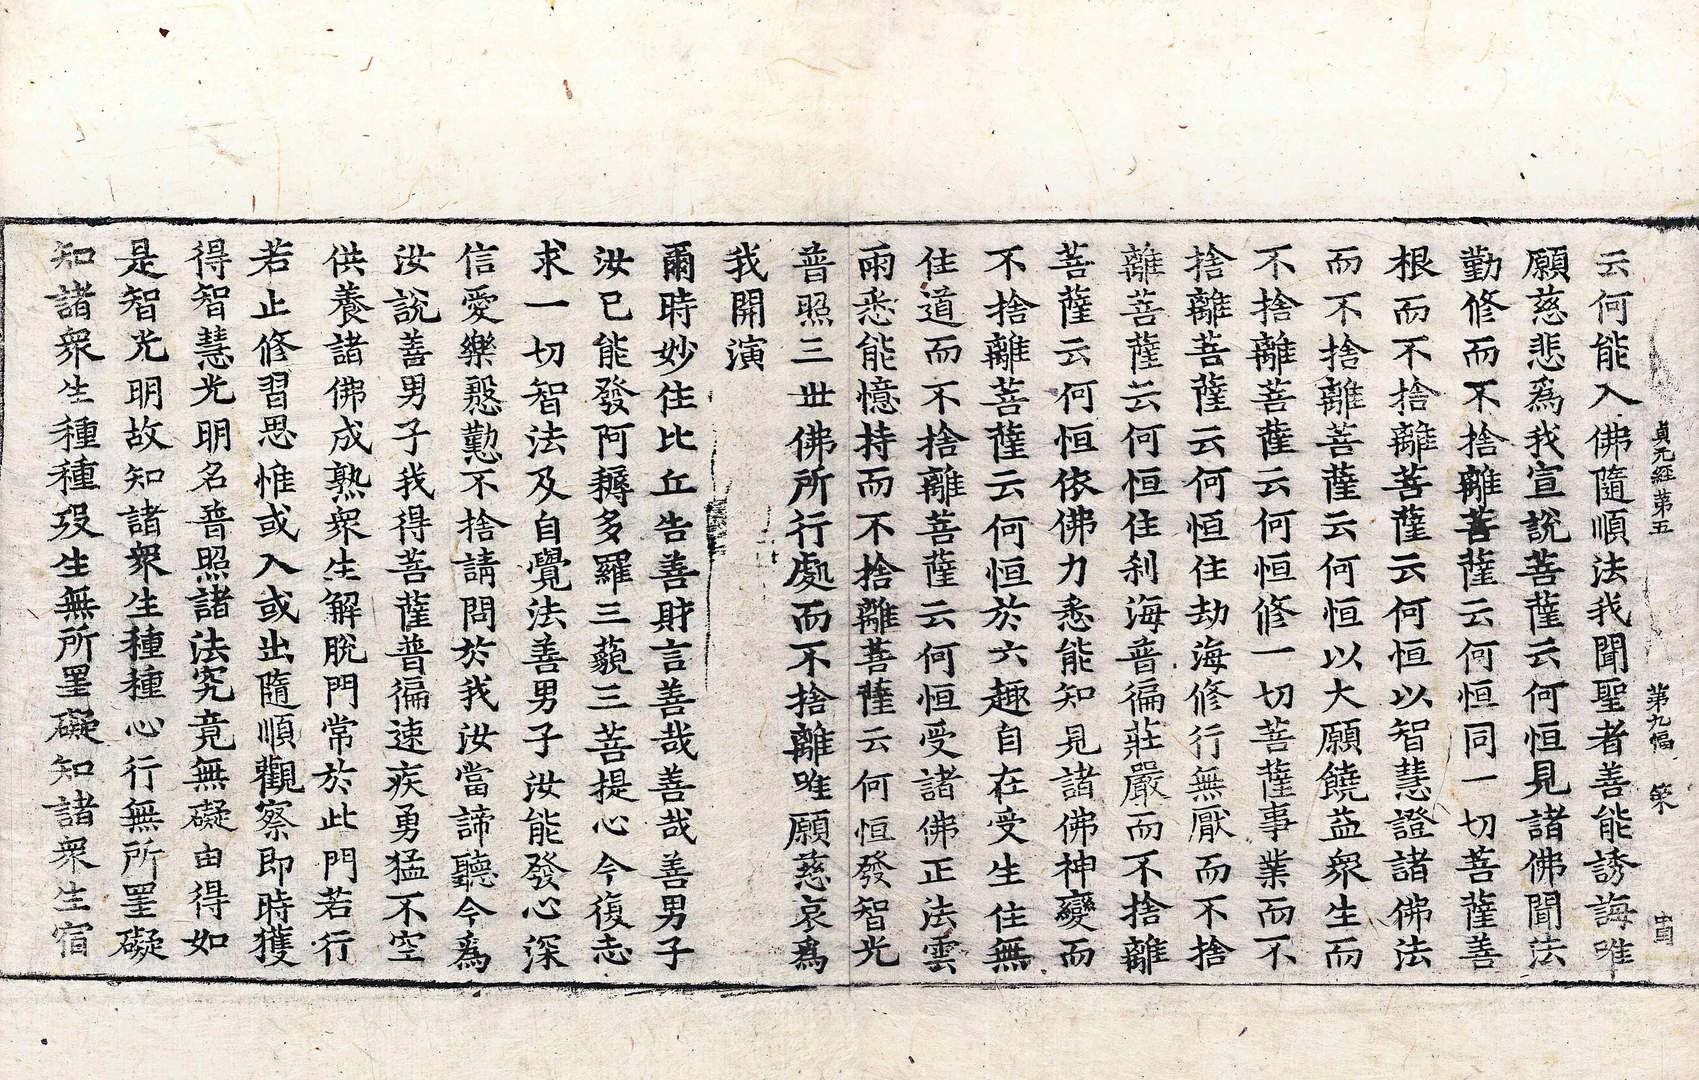 貞元經第五 第九幅 策
云何能入佛隨順法我聞聖者善能誘誨唯
願慈悲爲我宣說菩薩云何恒見諸佛聞法
勤修而不捨離菩薩云何恒同一切菩薩善
根而不捨離菩薩云何恒以智慧證諸佛法
而不捨離菩薩云何恒以大願饒益衆生而
不捨離菩薩云何恒修一切菩薩事業而不
捨離菩薩云何恒住劫海修行無厭而不捨
離菩薩云何恒住刹海普徧莊嚴而不捨離
菩薩云何恒依佛力悉能知見諸佛神變而
不捨離菩薩云何恒於六趣自在受生住無
住道而不捨離菩薩云何恒受諸佛正法雲
雨悉能憶持而不捨離菩薩云何恒發智光
普照三世佛所行處而不捨離唯願慈哀爲
我開演
爾時妙住比丘告善財言善哉善哉善男子
汝已能發阿耨多羅三藐三菩提心今復志
求一切智法及自覺法善男子汝能發心深
信愛樂慇懃不捨請問於我汝當諦聽今爲
汝說善男子我得菩薩普徧速疾勇猛不空
供養諸佛成熟衆生解脫門常於此門若行
若止修習思惟或入或出隨順觀察即時獲
得智慧光明名普照諸法究竟無礙由得如
是智光明故知諸衆生種種心行無所罣礙
知諸衆生種種歿生無所罣礙知諸衆生宿